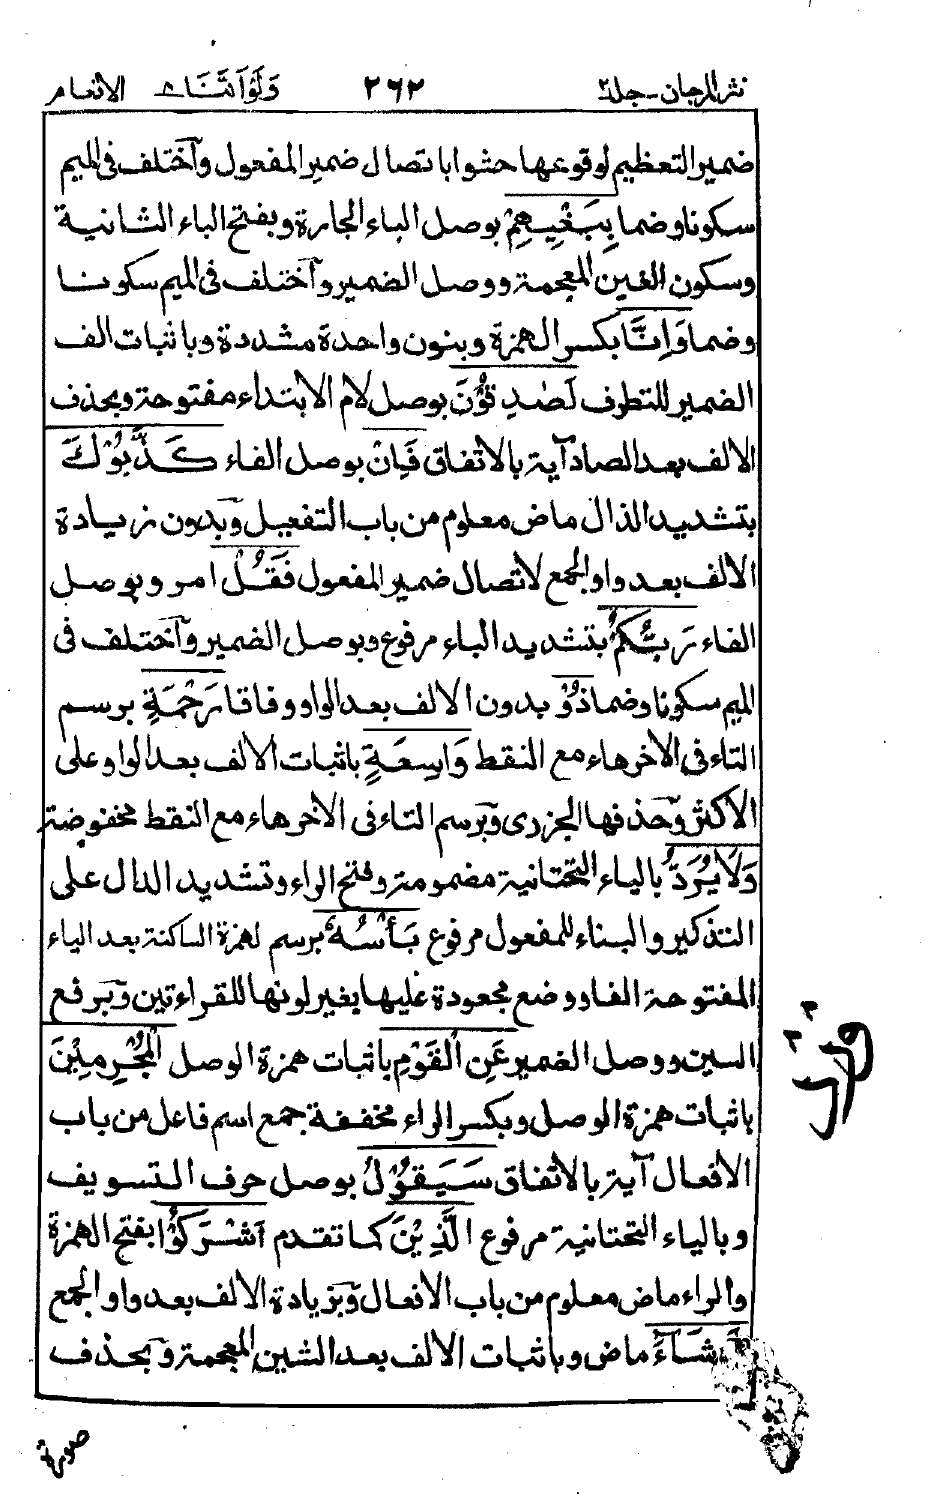 نثر المرجان-جلد۲ ۲۶۲ وَلَوْ أَنَّنَا ۸ الانعام
ضمير التعظيم لوقوعها حشوا باتصال ضمير المفعول وآختلف فى الميم
سكونا وضما بِبَغْيِهِمْ بوصل الباء الجارة وبفتح الباء الثانية
وسكون الغين المعجمة ووصل الضمير وآختلف فى الميم سكونا
وضما وَإِنَّا بكسر الهمزة وبنون واحدة مشددة وباثبات الف
الضمير للتطرف لَصٰدِقُوْنَ بوصل لام الابتداء مفتوحة وبحذف
الالف بعد الصاد آية بالاتفاق فَاِنْ بوصل الفاء كَذَّبُوْكَ
بتشديد الذال ماض معلوم من باب التفعيل وبدون زيادة
الالف بعد واو الجمع لاتصال ضمير المفعول فَقُلْ امر وبوصل
الفاء رَبُّكُمْ بتشديد الباء مرفوع وبوصل الضمير وآختلف فى
الميم سكونا وضما ذُوْ بدون الالف بعد الواو وفاقا رَحْمَةٍ برسم
التاء فى الأخر هاء مع النقط وَاسِعَةٍ باثبات الالف بعد الواو على
الاكثر وحذفها الجزرى وبرسم التاء فى الأخر هاء مع النقط مخفوضة
وَلَا يُرَدُّ بالياء التحتانية مضمومة وفتح الراء وتشديد الدال على
التذكير والبناء للمفعول مرفوع بَأْسُهٗ برسم لهمزة الساكنة بعد الباء
المفتوحة الفا ووضع مجعودة عليها بغير لونها للقراءتين وبرفع
السين ووصل الضمير عَنِ الْقَوْمِ باثبات همزة الوصل الْمُجْرِمِيْنَ
باثبات همزة الوصل وبكسر الراء مخففة جمع اسم فاعل من باب
الافعال آية بالاتفاق سَيَقُوْلُ بوصل حرف التسويف
وبالياء التحتانية مرفوع الَّذِيْنَ كما تقدم اَشْرَكُوْا بفتح الهمزة
والراء ماض معلوم من باب الافعال وبزيادة الالف بعد واو الجمع
شَآءَ ماض وباثبات الالف بعد الشين المعجمة وبحذف
صورة